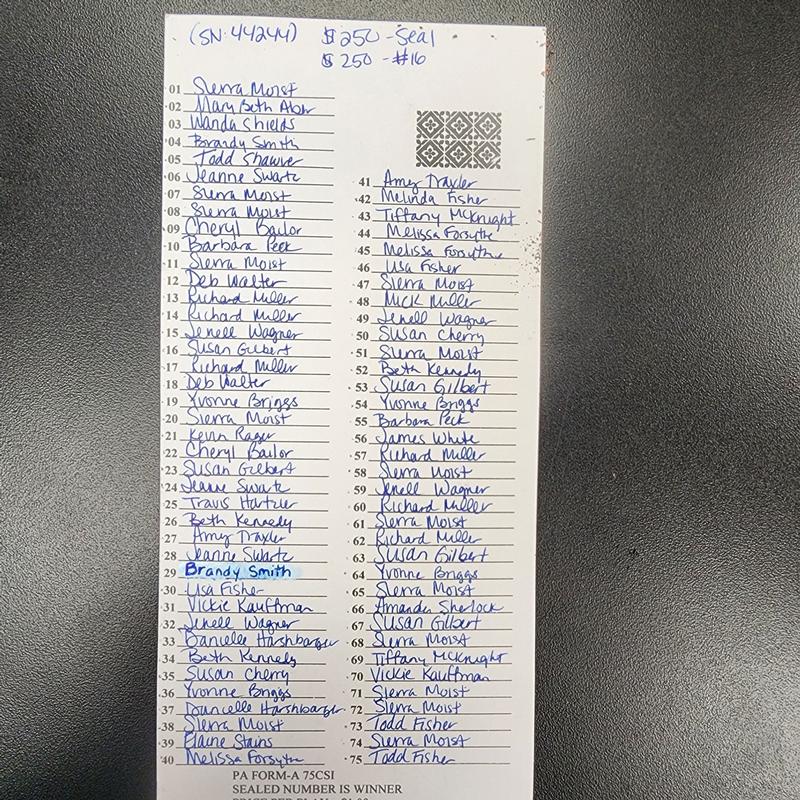 (SN: 44244) $250 - Seal
$250 - #16
01 Sierra Moist
02 Mary Beth
03 Wanda Shields
04 Brandy Smith
05 Todd Shawver
06 Jeanne Swartz
07 Sierra Moist
08 Sierra Moist
09 Cheryl Bailor
10 Barbara Peck
11 Sierra Moist
12 Deb Walter
13 Richard Miller
14 Richard Miller
15 Jenell Wagner
16 Susan Gilbert
17 Richard Miller
18 Deb Walter
19 Yvonne Briggs
20 Sierra Moist
21 Kevin Rager
22 Cheryl Bailor
23 Susan Gilbert
24 Jeanne Swartz
25 Travis Hartzler
26 Beth Kennedy
27 Amy Traxler
28 Jeanne Swartz
29 Brandy Smith
30 Lisa Fisher
31 Vickie Kauffman
32 Jenell Wagner
33 Danielle Harshbarger
34 Beth Kennedy
35 Susan Cherry
36 Yvonne Briggs
37 Danielle Harshbarger
38 Sierra Moist
39 Elaine Stains
40 Melissa Forsythe
41 Amy Traxler
42 Melinda Fisher
43 Tiffany McKnight
44 Melissa Forsythe
45 Melissa Forsythe
46 Lisa Fisher
47 Sierra Moist
48 Mick Miller
49 Jenell Wagner
50 Susan Cherry
51 Sierra Moist
52 Beth Kennedy
53 Susan Gilbert
54 Yvonne Briggs
55 Barbara Peck
56 James White
57 Richard Miller
58 Sierra Moist
59 Jenell Wagner
60 Richard Miller
61 Sierra Moist
62 Richard Miller
63 Susan Gilbert
64 Yvonne Briggs
65 Sierra Moist
66 Amanda Sherlock
67 Susan Gilbert
68 Sierra Moist
69 Tiffany McKnight
70 Vickie Kauffman
71 Sierra Moist
72 Sierra Moist
73 Todd Fisher
74 Sierra Moist
75 Todd Fisher
PA FORM-A 75CSI
SEALED NUMBER IS WINNER